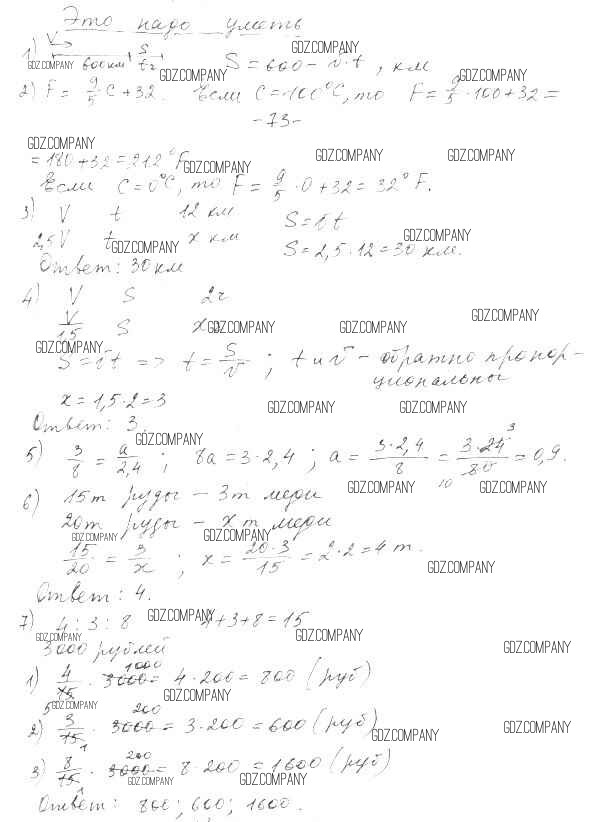 Это надо уметь
1) V S GDZ.COMPANY
GDZ.COMPANY 600км tч GDZ.COMPANY S = 600 - v·t, км
2) F = 9/5 · C + 32. Если C = 100°C, то F = 9/5 · 100 + 32 =
-73-
GDZ.COMPANY
= 180 + 32 = 212°F GDZ.COMPANY GDZ.COMPANY GDZ.COMPANY
Если C = 0°C, то F = 9/5 · 0 + 32 = 32°F.
3) V t 12 км S = vt
2,5V t GDZ.COMPANY x км GDZ.COMPANY
S = 2,5 · 12 = 30 км.
Ответ: 30 км
4) V S 2ч
V/1,5 S x GDZ.COMPANY GDZ.COMPANY GDZ.COMPANY
GDZ.COMPANY
S = vt => t = S/v ; t и v - обратно пропор-
циональны
x = 1,5 · 2 = 3 GDZ.COMPANY GDZ.COMPANY
Ответ: 3
GDZ.COMPANY
5) 3/8 = a/2,4 ; 8a = 3 · 2,4 ; a = 3 · 2,4/8 = 3 · 24/80 = 0,9. 3 10
6) 15т руды - 3т меди GDZ.COMPANY GDZ.COMPANY
20т руды - x т меди
GDZ.COMPANY GDZ.COMPANY
15/20 = 3/x ; x = 20 · 3/15 = 2 · 2 = 4 т.
GDZ.COMPANY
Ответ: 4.
7) 4 : 3 : 8 GDZ.COMPANY 4 + 3 + 8 = 15
GDZ.COMPANY GDZ.COMPANY
3000 рублей GDZ.COMPANY
1) 4/15 · 3000 = 4 · 200 = 800 (руб) 1000
5 GDZ.COMPANY GDZ.COMPANY
2) 3/15 · 3000 = 3 · 200 = 600 (руб) 200 1 GDZ.COMPANY GDZ.COMPANY
3) 8/15 · 3000 = 8 · 200 = 1600 (руб) 200 1
GDZ.COMPANY GDZ.COMPANY
Ответ: 800; 600; 1600.